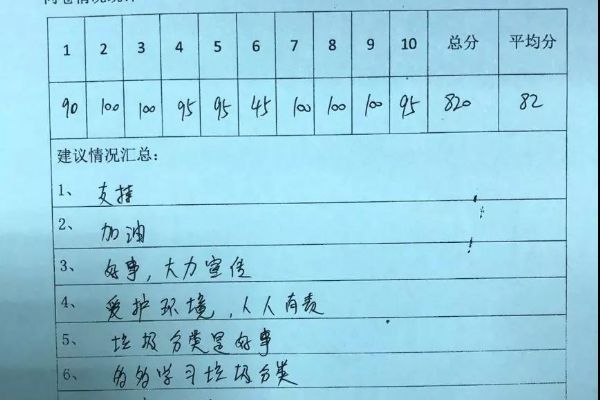 1 2 3 4 5 6 7 8 9 10 总分 平均分
90 100 100 95 95 45 100 100 100 95 820 82
建议情况汇总：
1、支持
2、加油
3、好事，大力宣传
4、爱护环境，人人有责
5、垃圾分类是好事
6、多多学习垃圾分类